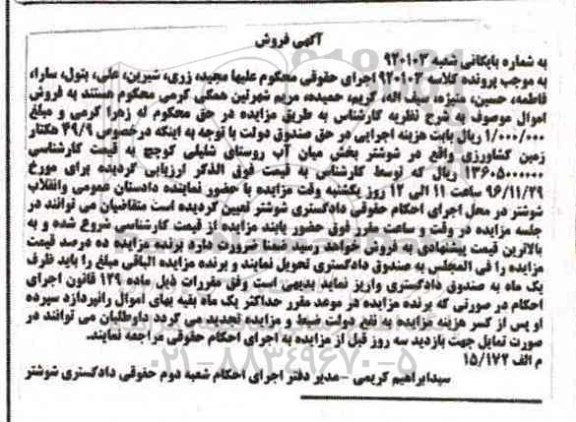 آگهی فروش
به شماره بایگانی شعبه ۹۲۰۱۰۳
به موجب پرونده کلاسه ۹۲۰۱۰۳ اجرای حقوقی محکوم علیها مجید، زری، شیرین، علی، بتول، سارا،
فاطمه، حسین، منیژه، سیف اله، کریم، حمیده، مریم شهرتین همگی کرمی محکوم هستند به فروش
اموال موصوف به شرح نظریه کارشناس به طریق مزایده در حق محکوم له زهرا کرمی و مبلغ
۱/۰۰۰/۰۰۰ ریال بابت هزینه اجرایی در حق صندوق دولت با توجه به اینکه درخصوص ۴۹/۹ هکتار
زمین کشاورزی واقع در شوشتر بخش میان آب روستای شلیلی کوچچ به قیمت کارشناسی
۱۳۶۰۵۰۰۰۰۰۰ ریال که توسط کارشناس به قیمت فوق الذکر ارزیابی گردیده برای مورخ
۹۶/۱۱/۲۹ ساعت ۱۱ الی ۱۲ روز یکشنبه وقت مزایده با حضور نماینده دادستان عمومی وانقلاب
شوشتر در محل اجرای احکام حقوقی دادگستری شوشتر تعیین گردیده است متقاضیان می توانند در
جلسه مزایده در وقت و ساعت مقرر فوق حضور یابند مزایده از قیمت کارشناسی شروع شده و به
بالاترین قیمت پیشنهادی به فروش خواهد رسید ضمنا ضرورت دارد برنده مزایده ده درصد قیمت
مزایده را فی المجلس به صندوق دادگستری تحویل نمایند و برنده مزایده الباقی مبلغ را باید ظرف
یک ماه به صندوق دادگستری واریز نماید بدیهی است وفق مقررات ذیل ماده ۱۲۹ قانون اجرای
احکام در صورتی که برنده مزایده در موعد مقرر حداکثر یک ماه بقیه بهای اموال رانپردازد سپرده
او پس از کسر هزینه مزایده به نفع دولت ضبط و مزایده تجدید می گردد داوطلبان می توانند در
صورت تمایل جهت بازدید سه روز قبل از مزایده به اجرای احکام حقوقی مراجعه نمایند.
م الف ۱۵/۱۷۲
۰۲۱-۸۸۳۴۹۶۷۰-۵
سیدابراهیم کریمی -مدیر دفتر اجرای احکام شعبه دوم حقوقی دادگستری شوشتر